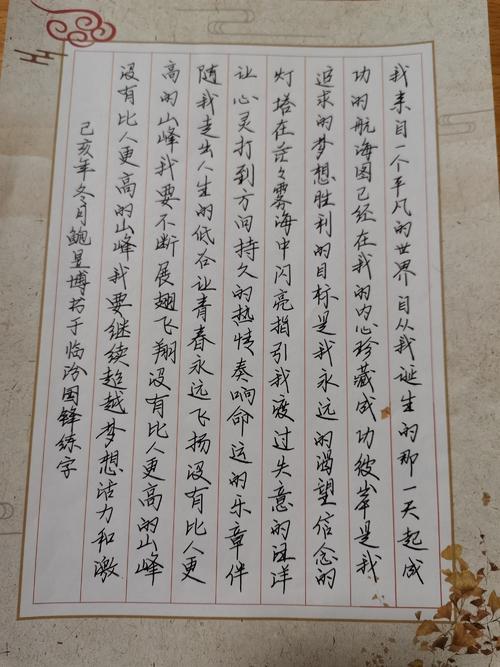 我来自一个平凡的世界自从我诞生的那一天起成
功的航海图已经在我的内心珍藏成功彼岸是我
追求的梦想胜利的目标是我永远的渴望信念的
灯塔在茫々雾海中闪亮指引我渡过失意的汪洋
让心灵打到方间持久的热情奏响命运的乐章伴
随我走出人生的低谷让青春永远飞扬没有比人更
高的山峰我要不断展翅飞翔没有比人更高的山峰
没有比人更高的山峰我要继续超越梦想活力和激
己亥年冬月鲍昱博书于临汾国锋练字